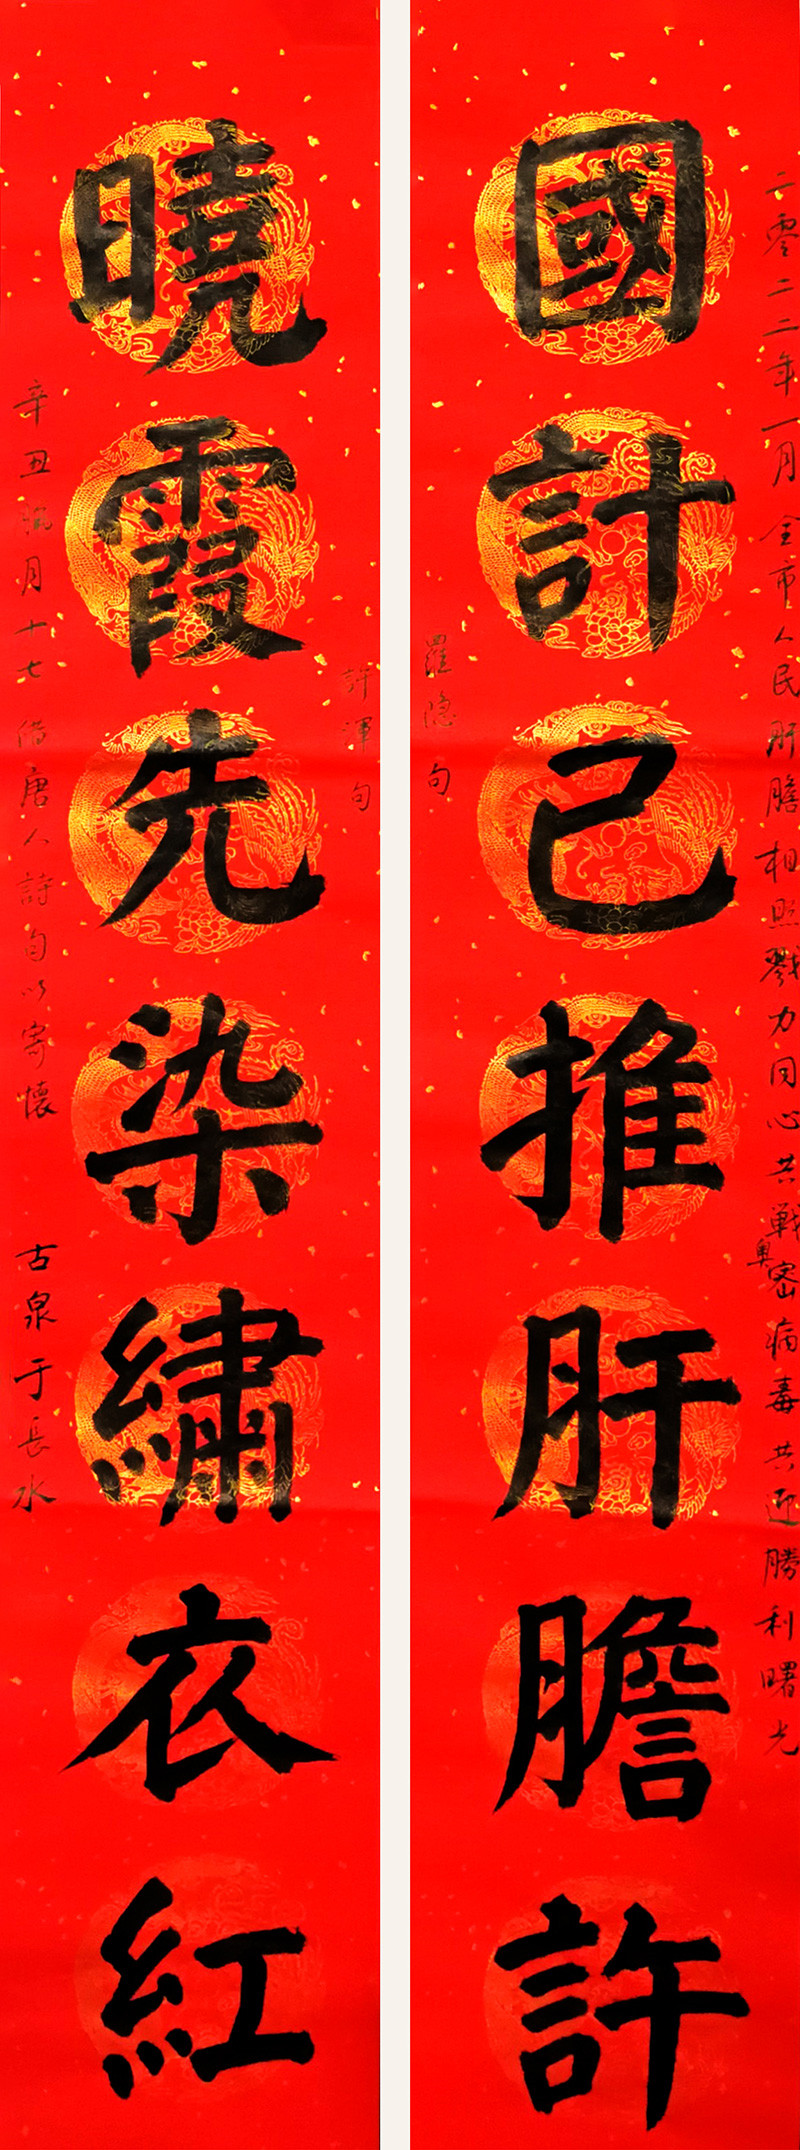 二零二二年一月全市人民肝膽相照戮力同心共戰奧密病毒共迎勝利曙光
國計已推肝膽許
羅隐句
許渾句
曉霞先染繡衣紅
辛丑臘月十七借唐人詩句以寄懷 古泉于長水